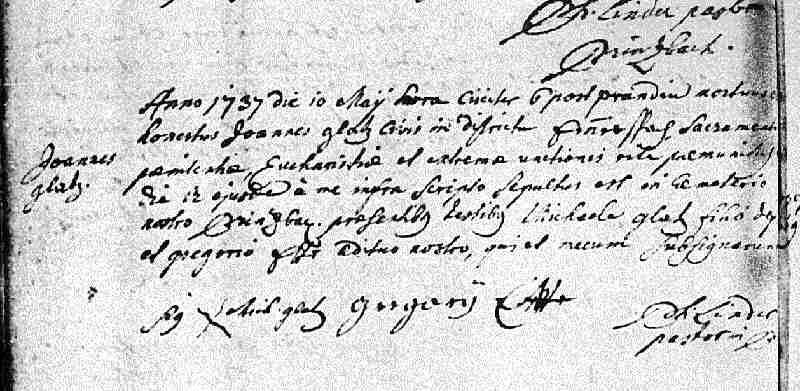 Ch. Linder pastor
Prinzbach.
Anno 1737 die 10 Maÿ hora Circiter 6 post prandiu mortuus
Joannes
glatz.
honestus Joannes glatz Civis in districtu Sacramentis
pœnitentiæ, Eucharistiæ et extremæ unctionis rite præmunitus
die 12 ejusdē à me infra scripto sepultus est in Cemeterio
nostro Prinzbac. presentibq testibq Michaele glatz filio
et gregorio ædituo nostro, qui et mecum subsignarunt
Sig Mich glatz gregoriÿ
Ch. Linder
pastor in